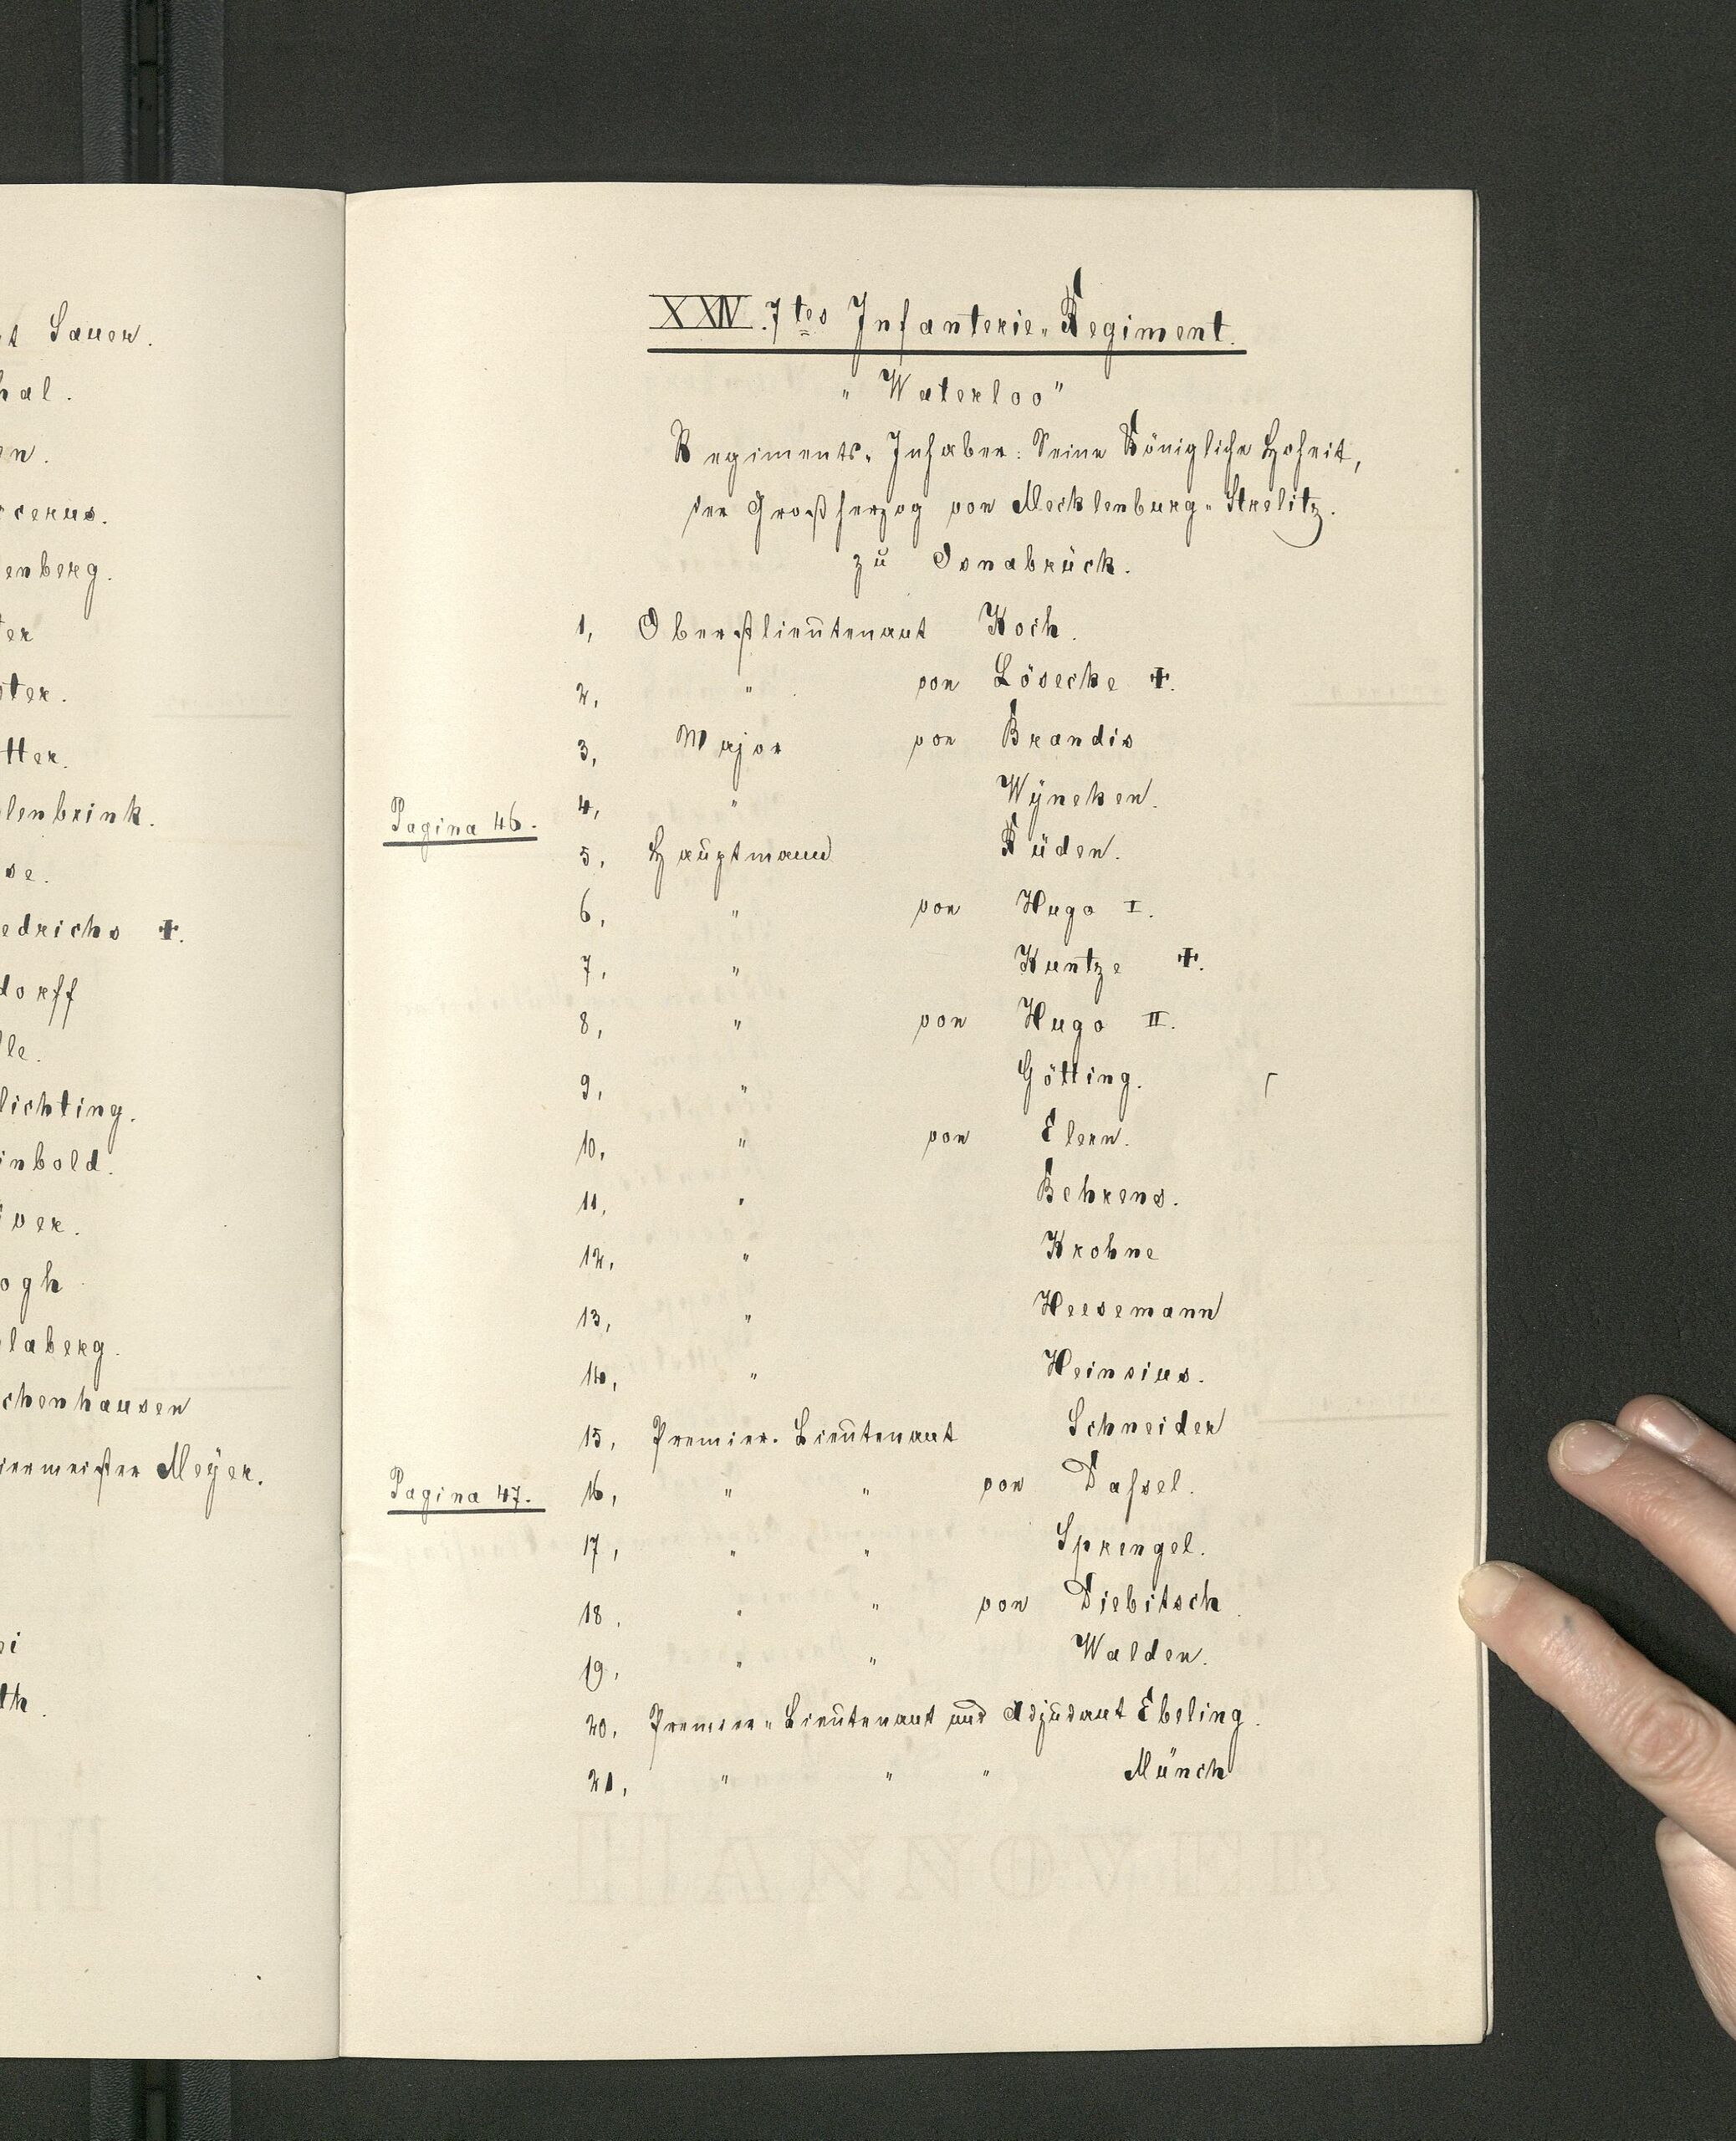 t Sauer.
hal.
en.
rcerus.
lenberg.
ter
oter.
tter.
lenbrink.
se.
edrichs ✝.
dorff
lle.
lichting.
inbold.
iver.
ogh
laberg.
chenhausen
iermeister Meÿer.
ei
dth.
XXIV. 7tes Infanterie-Regiment.
"Waterloo"
Regiments-Inhaber: Seine Königliche Hoheit,
der Großherzog von Mecklenburg-Strelitz.
zu Osnabrück.
1, Oberstlieutenant Koch.
2, " von Lösecke ✝.
3, Major von Brandis
4, " Wÿneken.
Pagina 46.
5, Hauptmann Rüden.
6, " von Hugo I.
7, " Kuntze ✝.
8, " von Hugo II.
9, " Götting.
10, " von Elern.
11, " Behrens.
12, " Krohne
13, " Heesemann
14, " Heinsius.
15, Premier-Lieutenant Schneider
Pagina 47.
16, " " von Dassel.
17, " " Sprengel.
18. " " von Diebitsch.
19, " " Walden.
20, Premier-Lieutenant und Adjudant Ebeling.
21, " " " Münch
HANNOVER